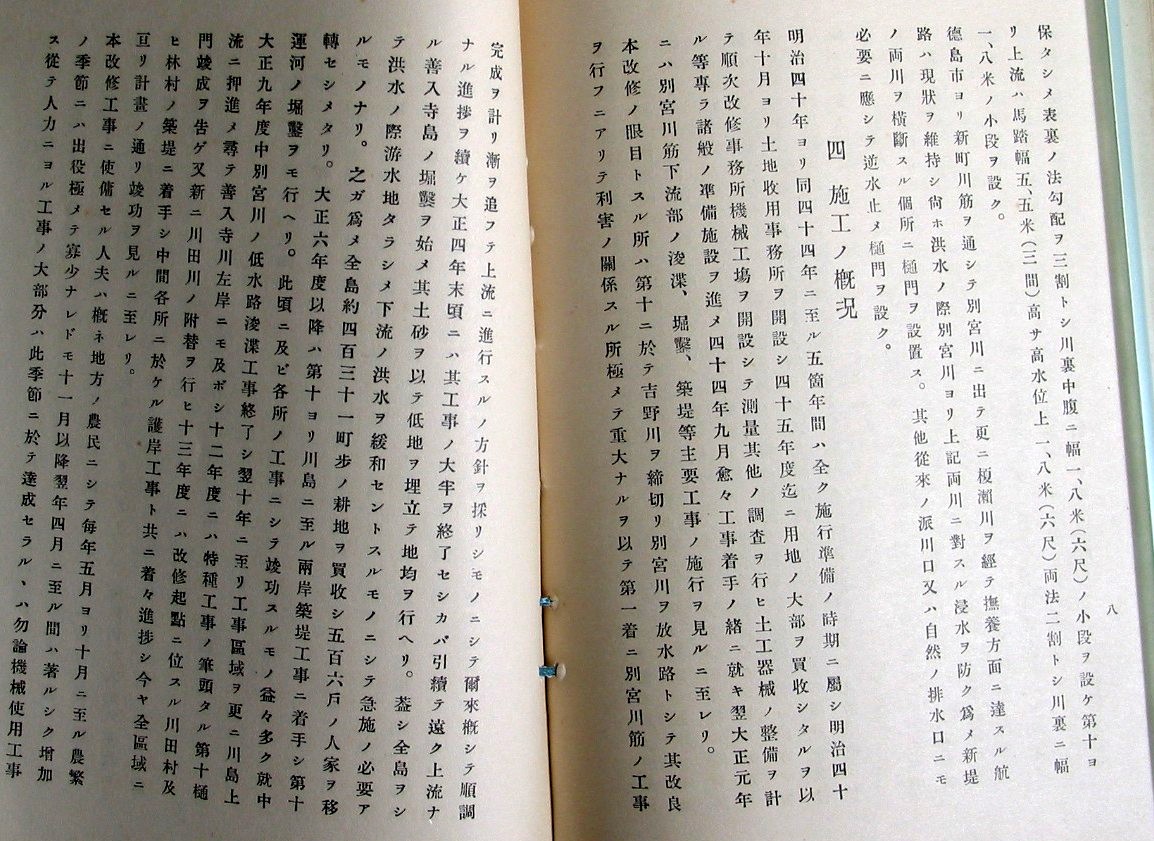 八
保タシメ表裏ノ法勾配ヲ三割トシ川裏中腹ニ幅一、八米(六尺)ノ小段ヲ設ケ第十ヨ
リ上流ハ馬踏幅五、五米(三間)高サ高水位上一、八米(六尺)両法二割トシ川裏ニ幅
一、八米ノ小段ヲ設ク。
德島市ヨリ新町川筋ヲ通シテ別宮川ニ出テ更ニ榎瀨川ヲ經テ撫養方面ニ達スル航
路ハ現狀ヲ維持シ尙ホ洪水ノ際別宮川ヨリ上記両川ニ對スル浸水ヲ防ク爲メ新堤
ノ両川ヲ橫斷スル個所ニ樋門ヲ設置ス。其他從來ノ派川口又ハ自然ノ排水口ニモ
必要ニ應シテ逆水止メ樋門ヲ設ク。
四 施工ノ槪況
明治四十年ヨリ同四十四年ニ至ル五箇年間ハ全ク施行準備ノ時期ニ屬シ明治四十
年十月ヨリ土地收用事務所ヲ開設シ四十五年度迄ニ用地ノ大部ヲ買收シタルヲ以
テ順次改修事務所機械工塲ヲ開設シテ測量其他ノ調査ヲ行ヒ土工器械ノ整備ヲ計
ル等專ラ諸般ノ準備施設ヲ進メ四十四年九月愈々工事着手ノ緒ニ就キ翌大正元年
ニハ別宮川筋下流部ノ浚渫、堀鑿、築堤等主要工事ノ施行ヲ見ルニ至レリ。
本改修ノ眼目トスル所ハ第十ニ於テ吉野川ヲ締切リ別宮川ヲ放水路トシテ其改良
ヲ行フニアリテ利害ノ關係スル所極メテ重大ナルヲ以テ第一着ニ別宮川筋ノ工事
完成ヲ計リ漸ヲ追フテ上流ニ進行スルノ方針ヲ採リシモノニシテ爾來槪シテ順調
ナル進捗ヲ續ケ大正四年末頃ニハ其工事ノ大半ヲ終了セシカバ引續テ遠ク上流ナ
ル善入寺島ノ堀鑿ヲ始メ其土砂ヲ以テ低地ヲ埋立テ地均ヲ行ヘリ。蓋シ全島ヲシ
テ洪水ノ際游水地タラシメ下流ノ洪水ヲ緩和セントスルモノニシテ急施ノ必要ア
ルモノナリ。之ガ爲メ全島約四百三十一町步ノ耕地ヲ買收シ五百六戶ノ人家ヲ移
轉セシメタリ。大正六年度以降ハ第十ヨリ川島ニ至ル兩岸築堤工事ニ着手シ第十
運河ノ堀鑿ヲモ行ヘリ。此頃ニ及ビ各所ノ工事ニシテ竣功スルモノ益々多ク就中
大正九年度中別宮川ノ低水路浚渫工事終了シ翌十年ニ至リ工事區域ヲ更ニ川島上
流ニ押進メ尋テ善入寺川左岸ニモ及ボシ十二年度ニハ特種工事ノ筆頭タル第十樋
門竣成ヲ吿ゲ又新ニ川田川ノ附替ヲ行ヒ十三年度ニハ改修起點ニ位スル川田村及
ヒ林村ノ築堤ニ着手シ中間各所ニ於ケル護岸工事ト共ニ着々進捗シ今ヤ全區域ニ
亘リ計畫ノ通リ竣功ヲ見ルニ至レリ。
本改修工事ニ使傭セル人夫ハ槪ネ地方ノ農民ニシテ毎年五月ヨリ十月ニ至ル農繁
ノ季節ニハ出役極メテ寡少ナレドモ十一月以降翌年四月ニ至ル間ハ著ルシク增加
ス從テ人力ニヨル工事ノ大部分ハ此季節ニ於テ達成セラルヽハ勿論機械使用工事